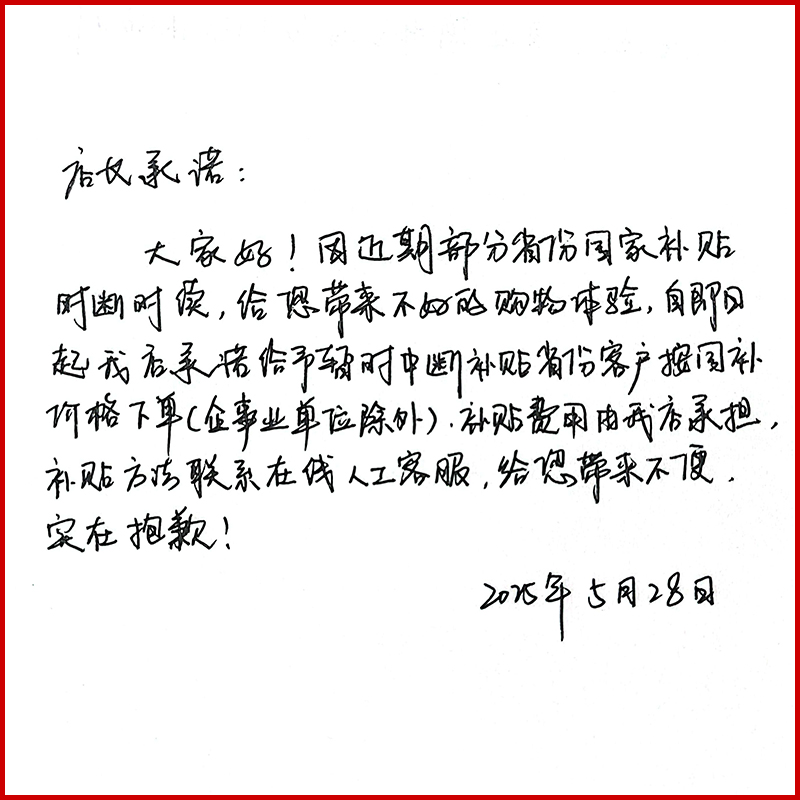 店长承诺：
大家好！因近期部分省份国家补贴
时断时续，给您带来不好的购物体验，自即日
起我店承诺给予暂时中断补贴省份客户按国补
价格下单（企事业单位除外）.补贴费用由我店承担，
补贴方法联系在线人工客服，给您带来不便.
实在抱歉！
2025年5月28日